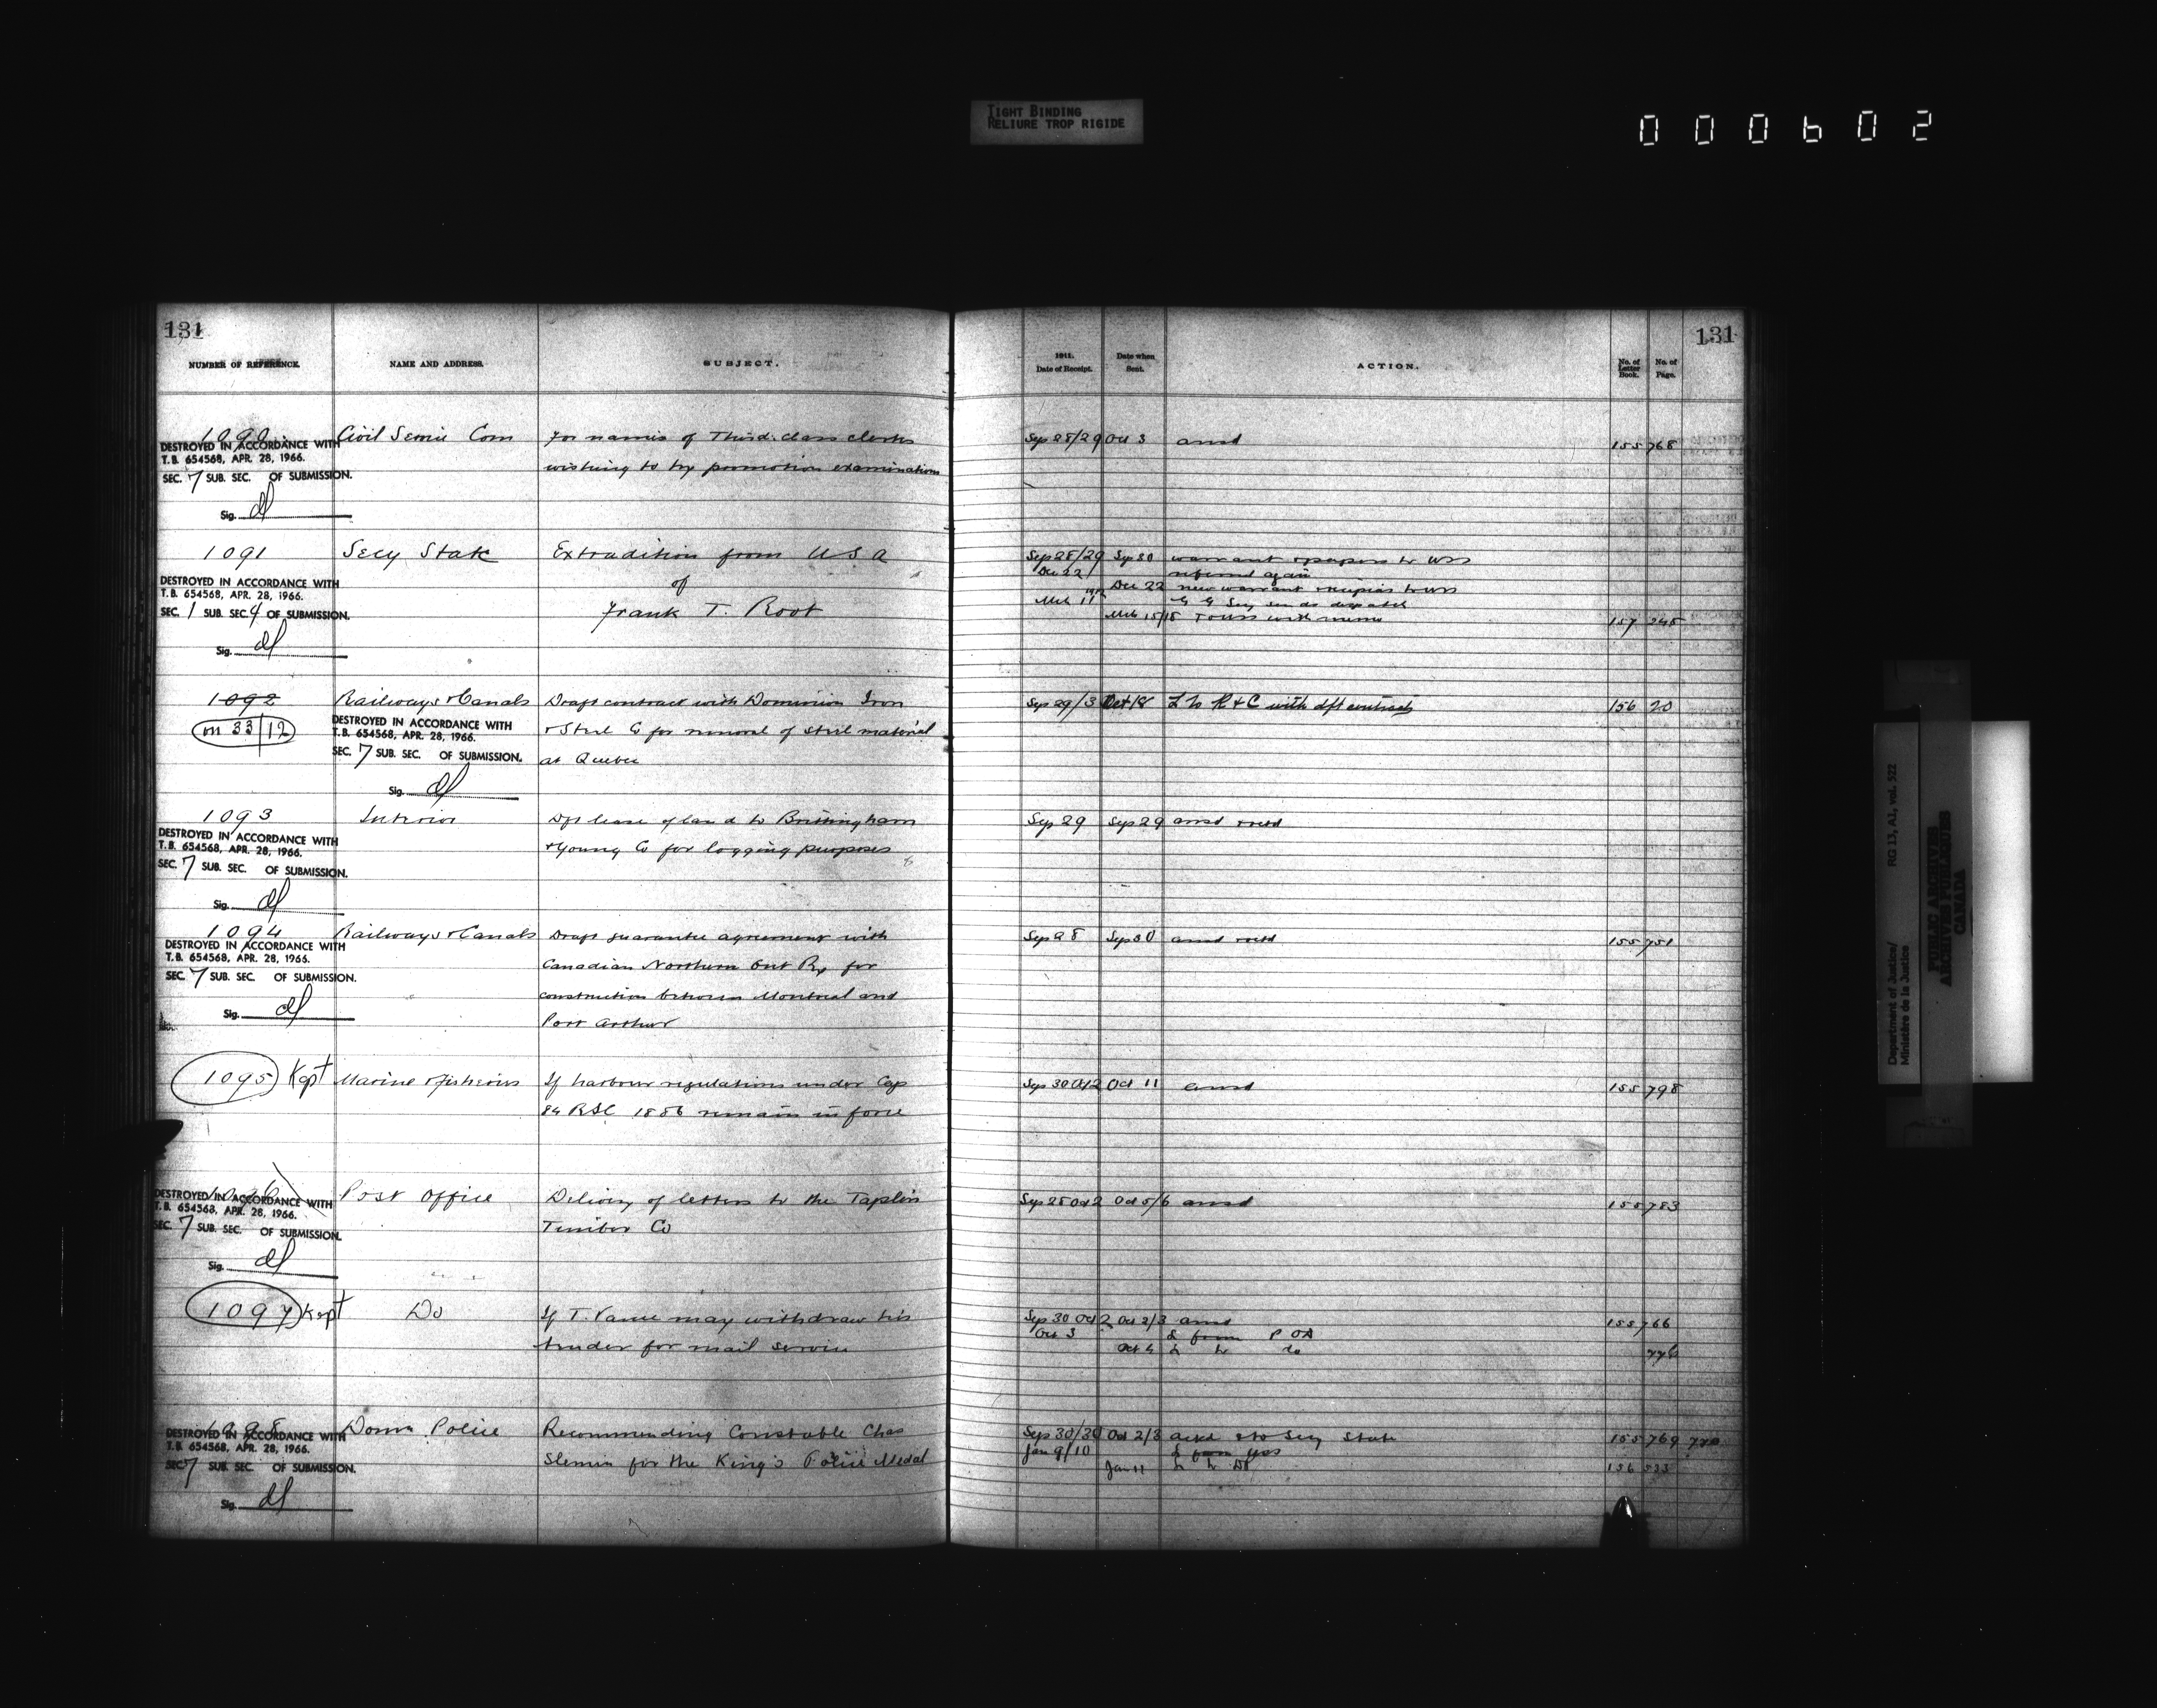 TIGHT BINDING
RELIURE TROP RIGIDE
000602
131
131
NUMBER OF REFERENCE.
NAME AND ADDRESS.
SUBJECT.
1911.
Date of Receipt.
Date when
Sent.
ACTION.
No. of
Letter
Book.
No. of
Page.
1090 Civil Service Com For names of Third class clerks Sep 28/29 Oct 3 ansd 155 768
DESTROYED IN ACCORDANCE WITH
T.B. 654568, APR. 28, 1966.
wishing to try promotion examinations
SEC. 7 SUB. SEC. OF SUBMISSION.
Sig.
1091 Secy State Extradition from U S A Sep 28/29 Sep 30 warrant & papers to USS
Dec 22 referred again
of
DESTROYED IN ACCORDANCE WITH
T.B. 654568, APR. 28, 1966.
Dec 22 new warrant
SEC. 1 SUB. SEC. 4 OF SUBMISSION.
Frank T. Root
Mch 11 G G Secy sends despatch
Mch 15/15 To USS with memo 157 245
Sig.
1092 Railways & Canals Draft contract with Dominion Iron Sep 29/3 Oct 18 L to R & C with dft contract 156 20
on 33/12
DESTROYED IN ACCORDANCE WITH
T.B. 654568, APR. 28, 1966.
& Steel Co for removal of steel material
SEC. 7 SUB. SEC. OF SUBMISSION.
at Quebec
Sig.
1093 Interior Dft lease of land to Brittingham Sep 29 Sep 29 ansd
DESTROYED IN ACCORDANCE WITH
T.B. 654568, APR. 28, 1966.
& Young Co for logging purposes
SEC. 7 SUB. SEC. OF SUBMISSION.
Sig.
1094 Railways & Canals Draft guarantee agreement with Sep 28 Sep 30 ansd 155 751
DESTROYED IN ACCORDANCE WITH
T.B. 654568, APR. 28, 1966.
Canadian Northern Ont Ry for
SEC. 7 SUB. SEC. OF SUBMISSION.
construction between Montreal and
Sig.
Port Arthur
1095 Kept Marine & Fisheries If harbour regulations under Cap Sep 30 Oct 2 Oct 11 ansd 155 798
84 RSC 1886 remain in force
1096 Post Office Delivery of letters to the Taplin Sep 28 Oct 2 Oct 5/6 ansd 155 783
DESTROYED IN ACCORDANCE WITH
T.B. 654568, APR. 28, 1966.
Timber Co
SEC. 7 SUB. SEC. OF SUBMISSION.
Sig.
1097 Kept Do If T. Vance may withdraw his Sep 30 Oct 2 Oct 2/3 ansd 155 766
Oct 3 L from P O D
tender for mail service
Oct 4 L to do 776
1098 Domn Police Recommending Constable Chas Sep 30/30 Oct 2/3 ackd & to Secy State 155 769 770
DESTROYED IN ACCORDANCE WITH
T.B. 654568, APR. 28, 1966.
Slemin for the King's Police Medal
Jan 9/10 L from
SEC. 7 SUB. SEC. OF SUBMISSION.
Jan 11 L to 156 533
Sig.
Department of Justice/
Ministère de la Justice
RG 13, A1, vol. 522
PUBLIC ARCHIVES
ARCHIVES PUBLIQUES
CANADA